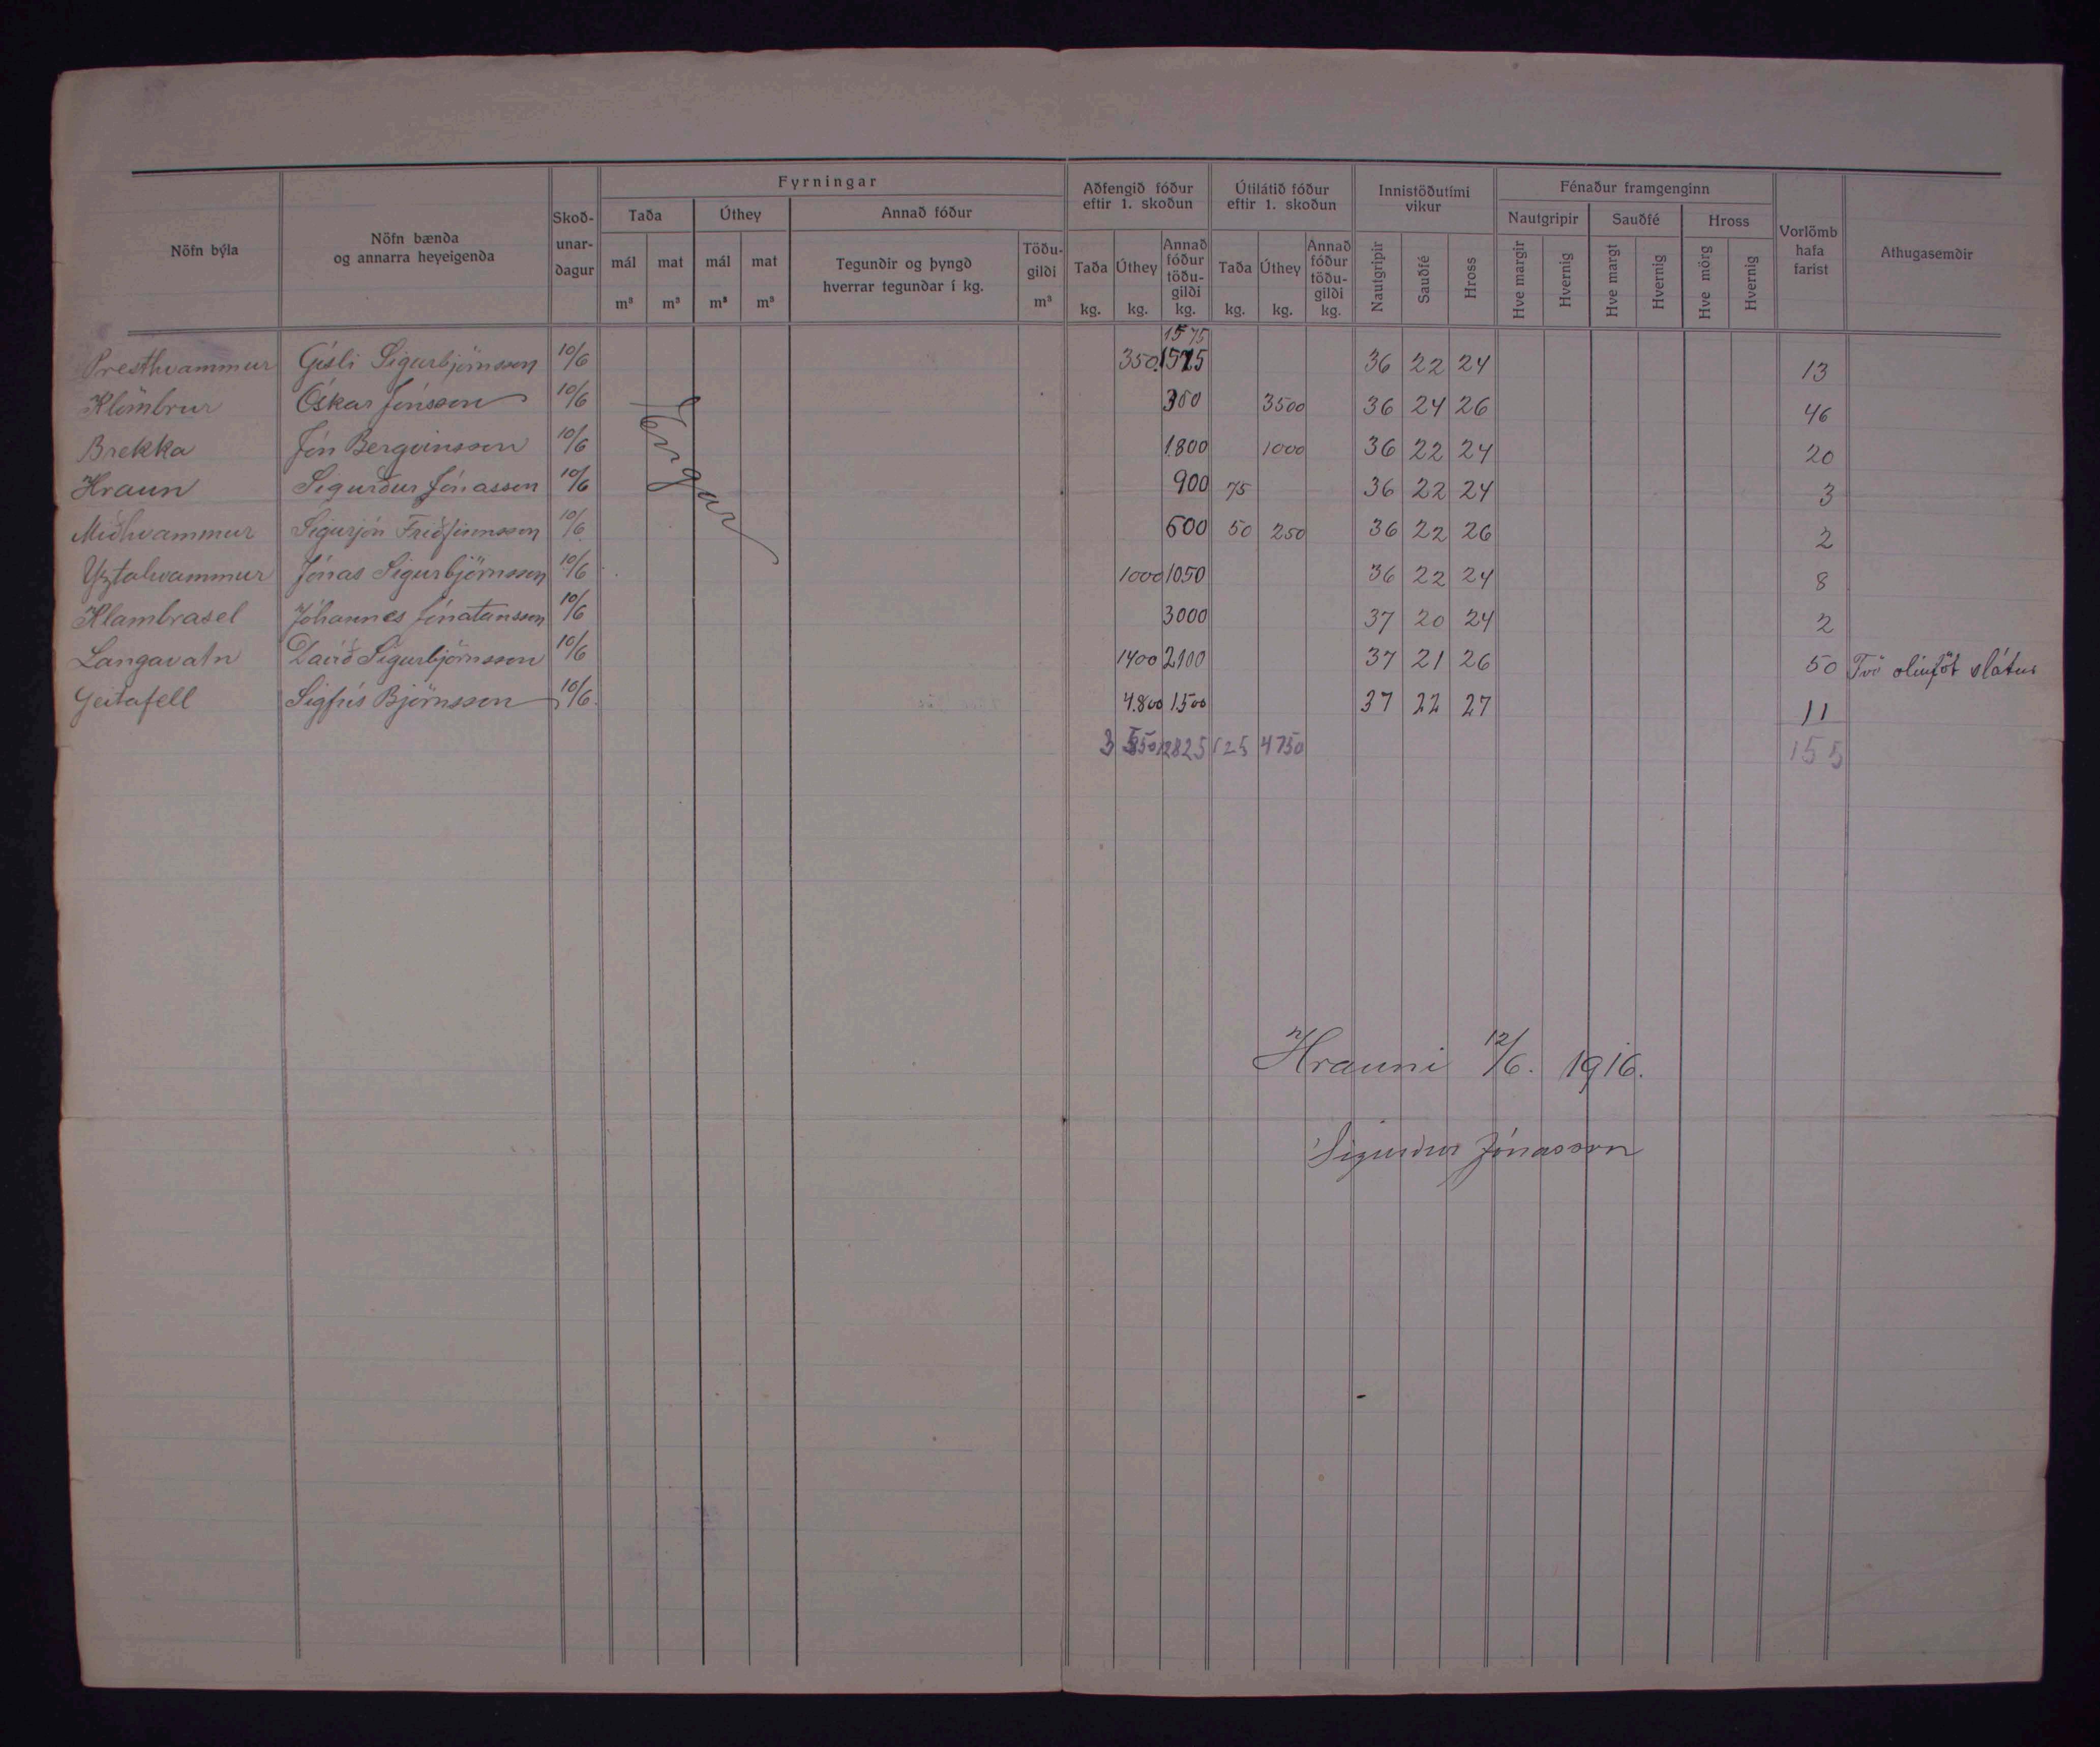 Fyrningar
Aðfengið fóður eftir 1. skoðun
Útilátið fóður eftir 1. skoðun
Innistöðutími vikur
Fénaður framgenginn
Nöfn býla
Nöfn bænda og annarra heyeigenda
Skoð-unar-dagur
Taða
Úthey
Annað fóður
mál m³
mat m³
mál m³
mat m³
Tegundir og þyngd hverrar tegundar í kg.
Töðu-gildi m³
Taða kg.
Úthey kg.
Annað fóður töðu-gildi kg.
Taða kg.
Úthey kg.
Annað fóður töðu-gildi kg.
Nautgripir
Sauðfé
Hross
Nautgripir
Sauðfé
Hross
Hve margir
Hvernig
Hve margt
Hvernig
Hve mörg
Hvernig
Vorlömb hafa farist
Athugasemdir
1575
Presthvammur Gísli Sigurbjörnsson 10/6 350 1575 36 22 24 13
Klömbrur Óskar Jónsson 10/6 300 3500 36 24 26 46
Brekka Jón Bergvinsson 10/6 1.800 1000 36 22 24 20
Hraun Sigurður Jónasson 10/6 900 75 36 22 24 3
Miðhvammur Sigurjón Friðfinnsson 10/6 600 50 250 36 22 26 2
Yztahvammur Jónas Sigurbjörnsson 10/6 1000 1050 36 22 24 8
Klambrasel Jóhannes Jónatansson 10/6 3000 37 20 24 2
Langavatn Davíð Sigurbjörnsson 10/6 1400 2100 37 21 26 50 Tvö slátur
Geitafell Sigfús Björnsson 10/6. 4.800 1500 37 22 27 11
Engar
12825 125 4750 155
Hrauni 12/6. 1916.
Sigurður Jónasson